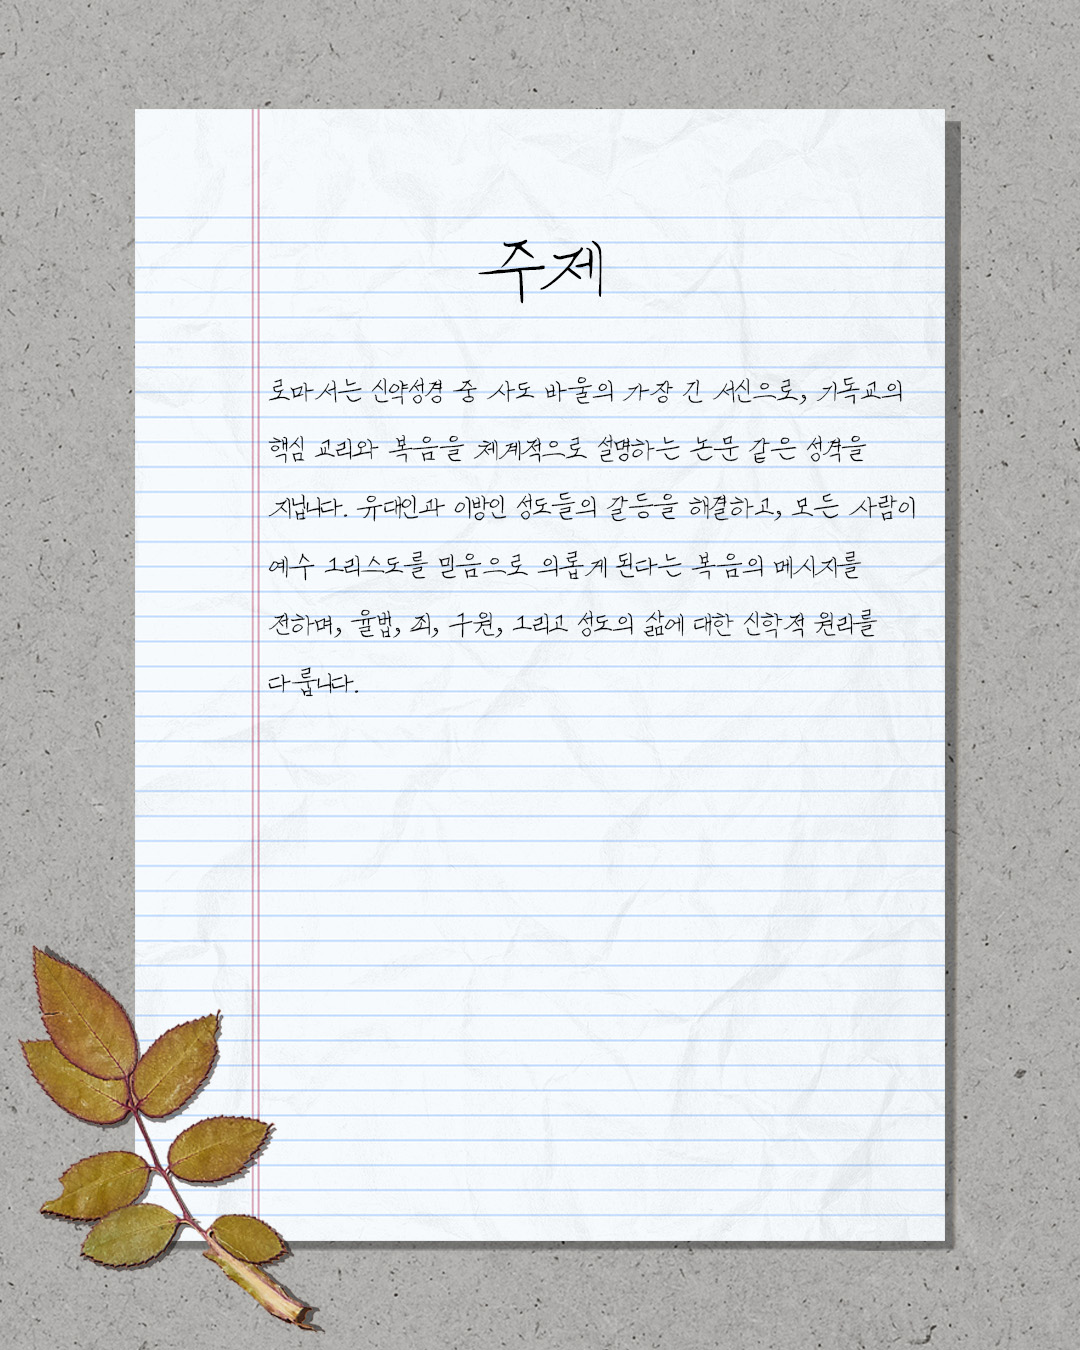 주제
로마서는 신약성경 중 사도 바울의 가장 긴 서신으로, 기독교의
핵심 교리와 복음을 체계적으로 설명하는 논문 같은 성격을
지닙니다. 유대인과 이방인 성도들의 갈등을 해결하고, 모든 사람이
예수 그리스도를 믿음으로 의롭게 된다는 복음의 메시지를
전하며, 율법, 죄, 구원, 그리고 성도의 삶에 대한 신학적 원리를
다룹니다.